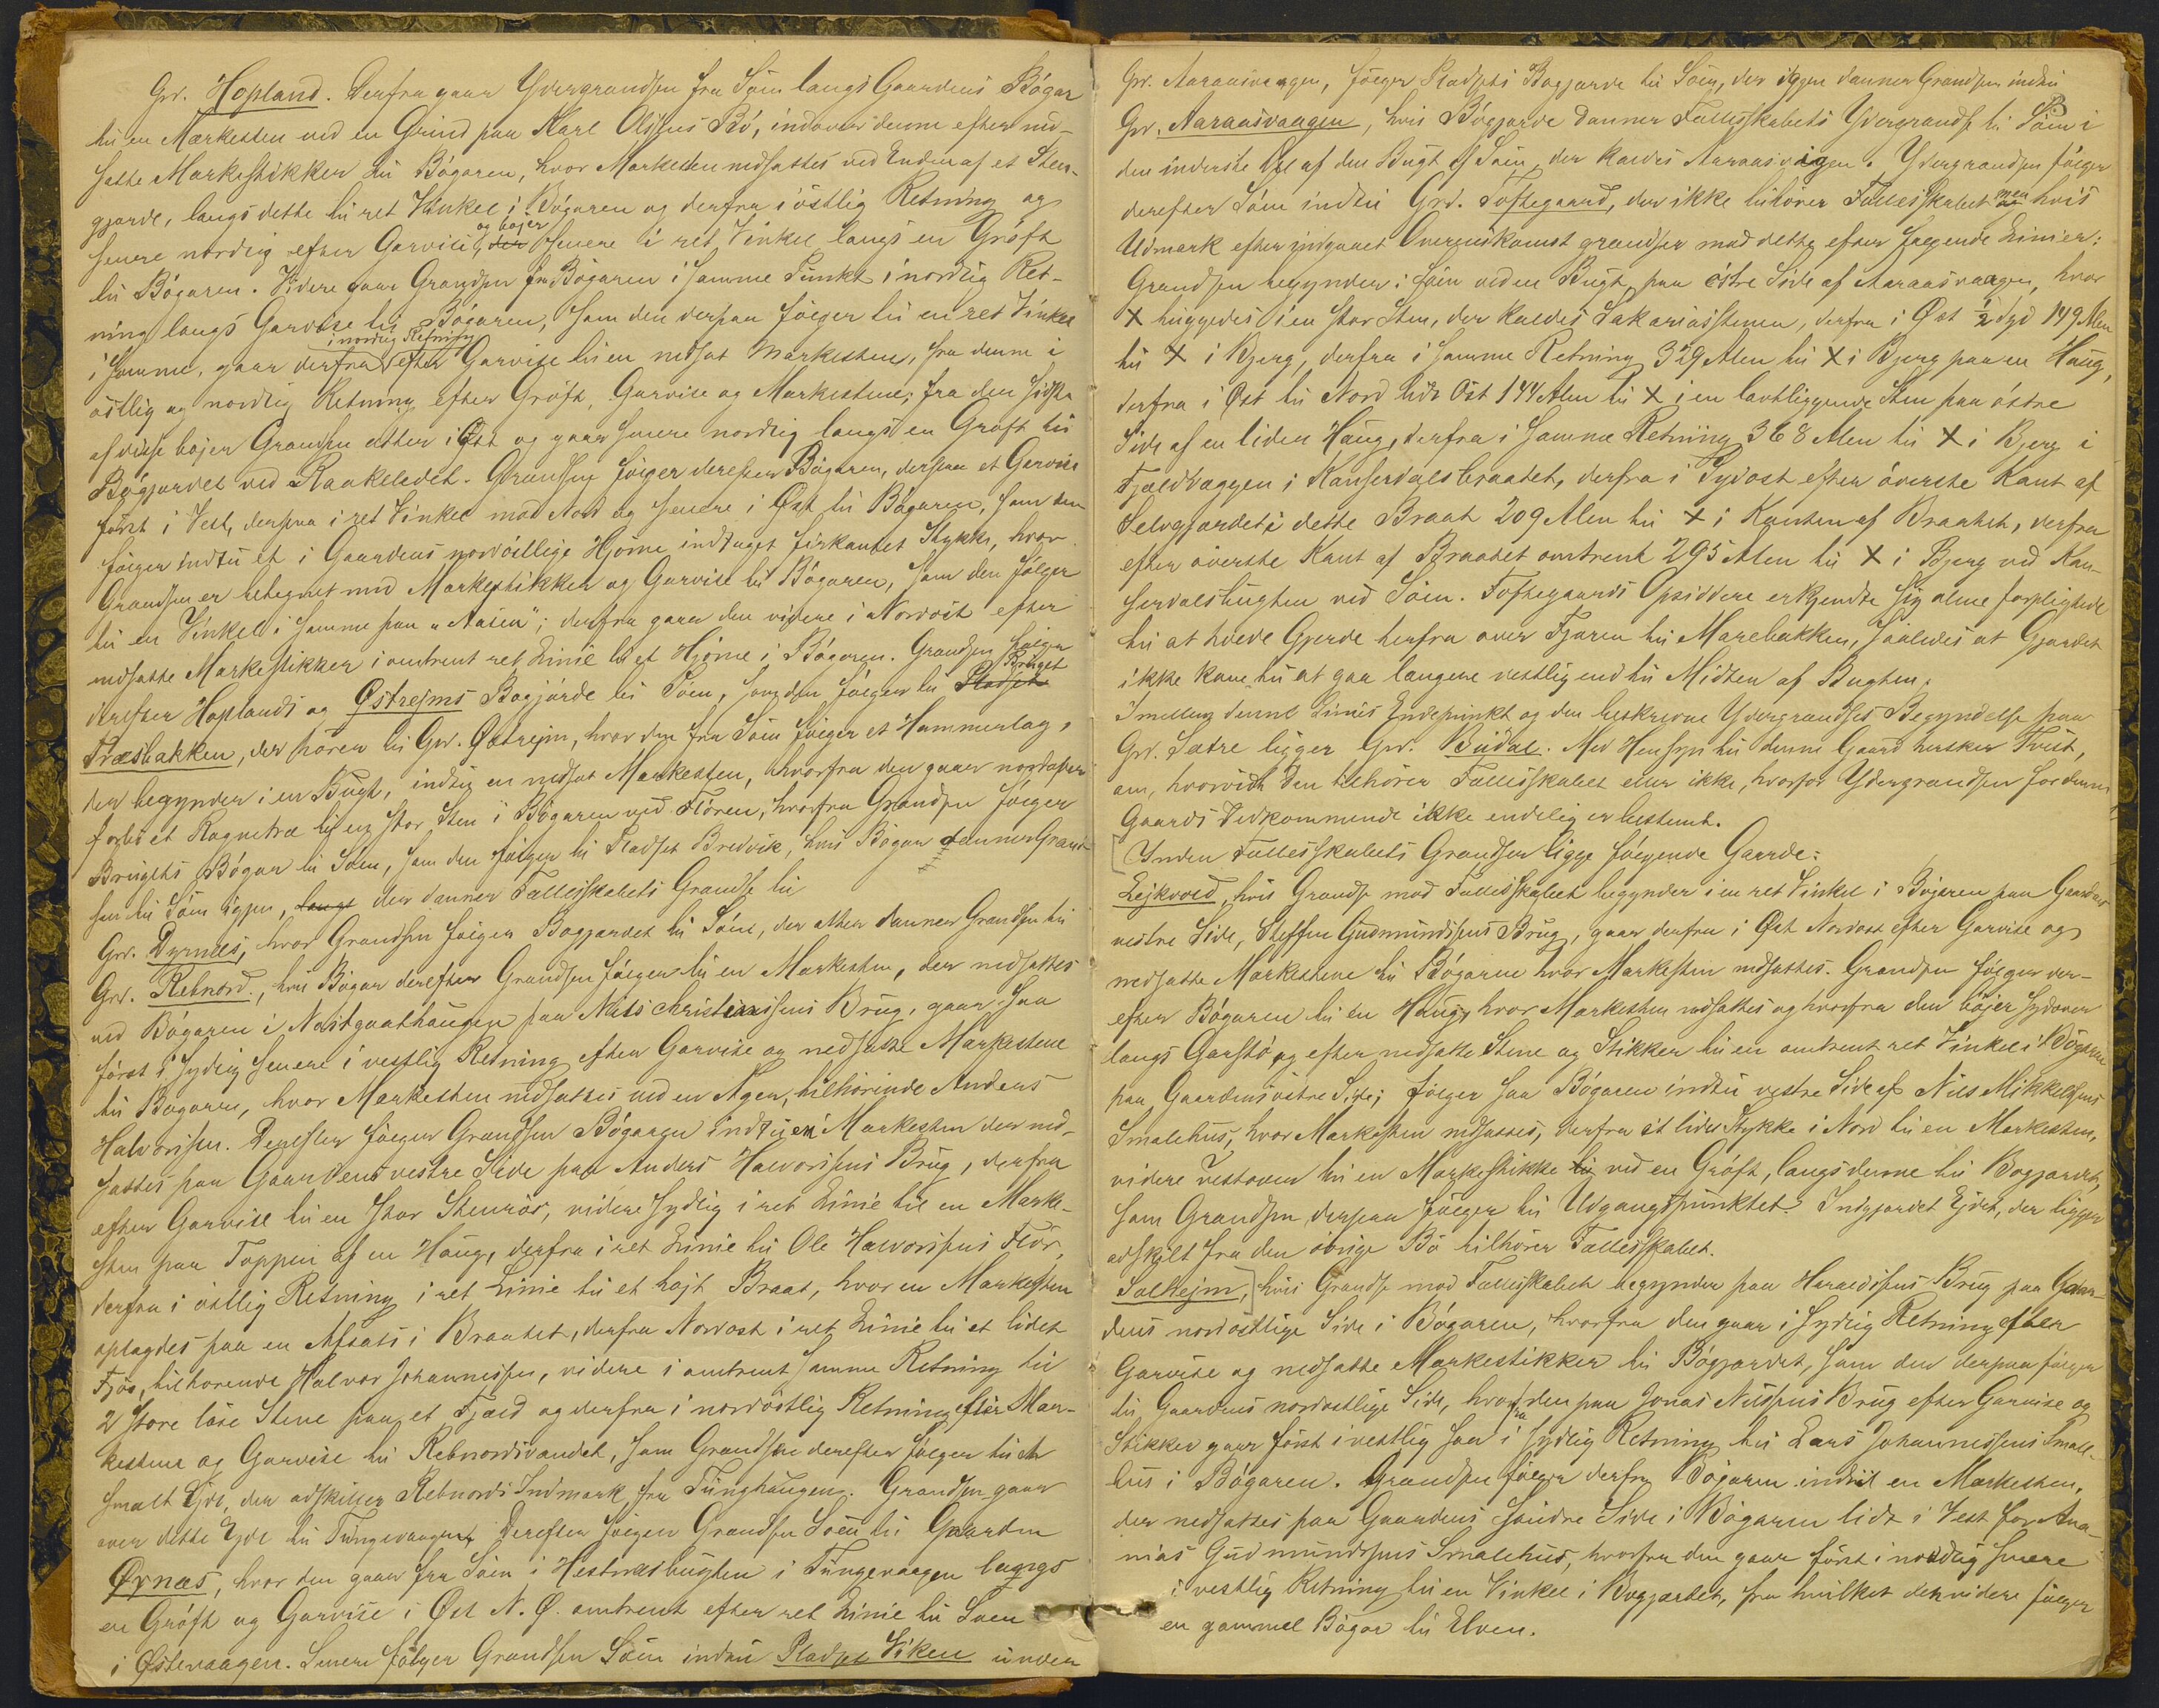 Grd. Hopland. Derfra gaar Ydergrandsen fra Söen langs Gaardens Bögar
til en Markesten ved en Grind paa Karl Olssens Bö, indover denne efter ned-
satte Markestikker til Bögaren, hvor Markesten nedsattes ved Enden af et Sten-
gjærde, langs dette til ret Vinkel i Bögaren og derfra i östlig Retning og
senere nordlig efter Garvise, der og böjer senere i ret Vinkel langs en Gröft
til Bögaren. Videre gaar Grandsen fra Bögaren i samme Punkt i nordlig Ret-
ning langs Garvise til Bögaren, som den derpaa fölger til en ret Vinkel
i samme, gaar derfra i nordlig Retning efter Garvise til en nedsat Markesten, fra denne i
östlig og nordlig Retning efter Gröft, Garvise og Markestene, fra den sidste
af disse böjer Grandsen atter i Øst og gaar senere nordlig langs en Gröft til
Bögjærdet ved Raakeledet. Grandsen fölger derefter Bögaren, derpaa et Garvise
först i Vest, derpaa i ret Vinkel mod Nord og senere i Øst til Bögaren, som den
fölger indtil et i Gaardens nordöstlige Hjörne indtaget firkantet Stykke, hvor
Grandsen er betegnet med Markestikker og Garvise til Bögaren, som den fölger
til en Vinkel i samme paa "Aasen"; derfra gaar den videre i Nordost efter
nedsatte Markestikker i omtrent ret Linie til et Hjörne i Bögaren. Grandsen fölger
derefter Hoplands og Østrejms Bögjærde til Söen, som den fölger til Pladset Bruget
Træsbakken, der hörer til Grd. Østrejm, hvor den fra Söen fölger et Hammerlag,
der begynder i en Bugt, indtil en nedsat Markesten, hvorfra den gaar nordover
forbi et Rognetræ til en stor Sten i Bögaren ved Flören, hvorfra Grandsen fölger
Brugets Bögar til Söen, som den fölger til Pladset Bredvik, hvis Bögar danner Grand-
sen til Söen igjen, langs der danner Fællesskabets Grandse til
Grd. Dyrnes, hvor Grandsen fölger Bögjærdet til Söen, der atter danner Grandsen til
Grd. Rebnord, hvis Bögar derefter Grandsen fölger til en Markesten, der nedsattes
ved Bögaren i Nostgaathaugen paa Nils Christianssens Brug, gaar saa
först i sydlig senere i vestlig Retning efter Garvise og nedsatte Markestene
til Bögaren, hvor Markesten nedsattes ved en Ager, tilhörende Anders
Halvorssen. Derefter fölger Grandsen Bögaren indtil en Markesten der ned-
sattes paa Gaardens vestre Side paa Anders Halvorssens Brug, derfra
efter Garvise til en stor Stenrös, videre sydlig i ret Linie til en Marke-
sten paa Toppen af en Haug, derfra i ret Linie til Ole Halvorssens Flör,
derfra i östlig Retning i ret Linie til et højt Braat, hvor en Markesten
oplagdes paa en Afsats i Braatet, derfra Nordost i ret Linie til et lidet
Fjös, tilhörende Halvor Johannessen, videre i omtrent samme Retning til
2 store löse Stene paa et Fjeld og derfra i nordöstlig Retning efter Mar-
kestene og Garvise til Rebnordsvandet, som Grandsen derefter fölger til et
smalt Ejde, der adskiller Rebnords Indmark fra Tunghaugen. Grandsen gaar
over dette Ejde til Tungevaagen. Derefter fölger Grandsen Söen til Gaarden
Ørnæs, hvor den gaar fra Söen i Hestnæsbugten i Tungevaagen langs
en Gröft og Garvise i Øst N. Ø. omtrent efter ret Linie til Söen
i Østevaagen. Senere fölger Grandsen Söen indtil Pladset Viken under
Grd. Aaraasvaagen, fölger Pladsets Bøgjærde til Söen, der igjen danner Grandsen indtil
Grd. Aaraasvaagen, hvis Bögjærde danner Fællesskabets Ydergrandse til Söen i
den inderste Del af den Bugt af Söen, der kaldes Aaraasvigen. Ydergrandsen fölger
derefter Söen indtil Grd. Toftegaard, der ikke tilhörer Fællesskabet og men hvis
Udmark efter indgaaet Overenskomst grandser mod dette efter fölgende Linier:
Grandsen begynder i Söen ved en Bugt paa östre Side af Aaraasvaagen, hvor
X huggedes i en stor Sten, der kaldes Sakariasstenen, derfra i Øst ½ Syd 149 Alen
til X i Bjerg, derfra i samme Retning 329 Alen til X i Bjerg paa en Haug,
derfra i Øst til Nord lidt Öst 144 Alen til X i en lavtliggende Sten paa östre
Side af en liden Haug, derfra i samme Retning 368 Alen til X i Bjerg i
Fjeldvæggen i Kanserdalsbraatet, derfra i Sydost efter överste Kant af
Selvgjærdet i dette Braat 209 Alen til X i Kanten af Braatet, derfra
efter överste Kant af Braatet omtrent 295 Alen til X i Bjerg ved Kan-
serdalsbugten ved Söen. Toftegaards Opsiddere erkjendte sig alene forpligtede
til at holde Gjerde herfra over Fjæren til Marebakken, saaledes at Gjærdet
ikke kom til at gaa længere vestlig end til Midten af Bugten.
Imellem denne Linies Endepunkt og den beskrevne Ydergrandses Begyndelse paa
Grd. Sætre ligger Grd. Budal. Med Hensyn til denne Gaard hersker Tvist,
om, hvorvidt den tilhörer Fællesskabet eller ikke, hvorfor Ydergrandsen for denne
Gaards Vedkommende ikke endelig er bestemt.
[Inden Fællesskabets Grandser ligge fölgende Gaarde:
Lejkvold, hvis Grandse mod Fællesskabet begynder i en ret Vinkel i Bögaren paa Gaardens
vestre Side, Steffen Gudmundssens Brug, gaar derfra i Øst Nordost efter Garvise og
nedsatte Markestene til Bögaren hvor Markesten nedsattes. Grandsen fölger der-
efter Bögaren til en Haug, hvor Markesten nedsattes og hvorfra den böjer sydover
langs Garstö og efter nedsatte Stene og Stikker til en omtrent ret Vinkel i Bögaren
paa Gaardens östre Side; fölger saa Bögaren indtil vestre Side af Nils Mikkelsens
Smalehus, hvor Markesten nedsattes, derfra et lidet Stykke i Nord til en Markesten,
videre vestover til en Markestikke til ved en Gröft, langs denne til Bögjærdet,
som Grandsen derpaa fölger til Udgangspunktet. Indgjærdet Ejdet, der ligger
adskilt fra den övrige Bö tilhörer Fællesskabet.
Solhejm,] hvis Grandse mod Fællesskabet begynder paa Haraldssens Brug paa Gaar-
dens nordostlige Side i Bögaren, hvorfra den gaar i sydlig Retning efter
Garvise og nedsatte Markestikker til Bögjærdet, som den derpaa fölger
til Gaardens nordvestlige Side, hvorfra den paa Jonas Nilssens Brug efter Garvise og
Stikker gaar först i vestlig saa i sydlig Retning til Lars Johannessens Smale-
hus i Bögaren. Grandsen fölger derfra Bögaren indtil en Markesten,
der nedsattes paa Gaardens söndre Side i Bögaren lidt i Vest for Ana-
nias Gudmundssens Smalehus, hvorfra den gaar först i nordlig senere
i vestlig Retning til en Vinkel i Bögjærdet, fra hvilket den videre fölger
en gammel Bögar til Elven.